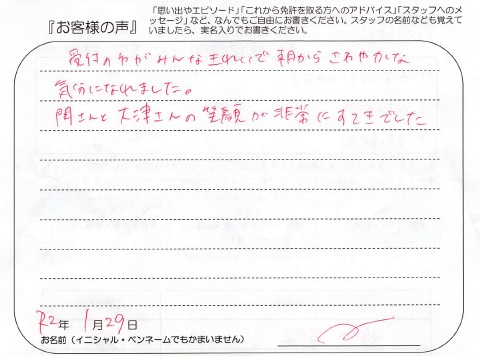 『お客様の声』
「思い出やエピソード」「これから免許を取る方へのアドバイス」「スタッフへのメ
ッセージ」など、なんでもご自由にお書きください。スタッフの名前なども覚えて
いましたら、実名入りでお書きください。
受付の方がみんなきれいで朝からさわやかな
気分になれました。
関さんと大津さんの笑顔が非常にすてきでした
R2年 1月29日
お名前（イニシャル・ペンネームでもかまいません）